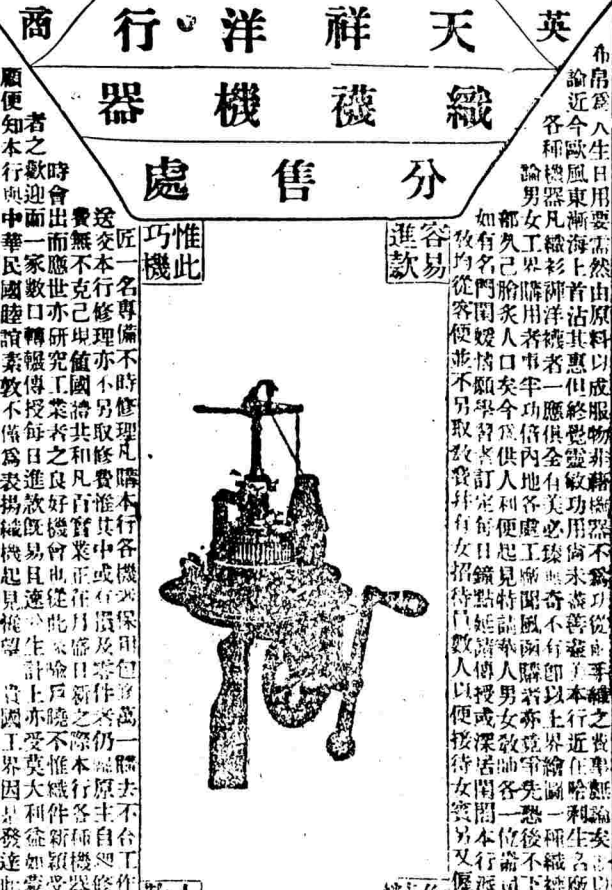 英
天祥洋行
商
織襪機器
分售處
容易
進款
惟此
巧機
布帛爲人生日用要需然由原料以成服物非藉機器不爲功從前手織之費事無論矣
論近今歐風東漸海上首沾其惠但終覺靈敏功用尚未盡善盡美本行近在哈利生名廠
各種機器凡織衫褲洋襪者一應俱全有美必臻無奇不有卽以上界繪圖一種織襪
論男女工界購用者事半功倍內地各處工廠聞風函購者亦竟爭先恐後不下
部久已膾炙人口矣今爲供人利便起見特請華人男女敎師各一位
如有名門閨媛情願學習者訂定每日鐘點延請傳授或深居閨閣本行派
敎均從客便並不另取敎費幷有女招待員數人以便接待女賓另又僱
匠一名專備不時修理凡購本行各機器保用包換萬一購去不合工作
送交本行修理亦不另取修費惟其中或有損及零件者仍歸原主自
費無不克己現値國體共和凡百實業正在月盛日新之際本行各種機器
時會出而應世亦研究工業者之良好機會也從此
不惟織件新穎受
者之歡迎而一家數口轉輾傳授每日進款旣易且速
生計上亦受莫大利益如蒙
顧便知本行與中華民國睦誼素敦不僅爲表揚織機起見惟望
貴國工界因是發達